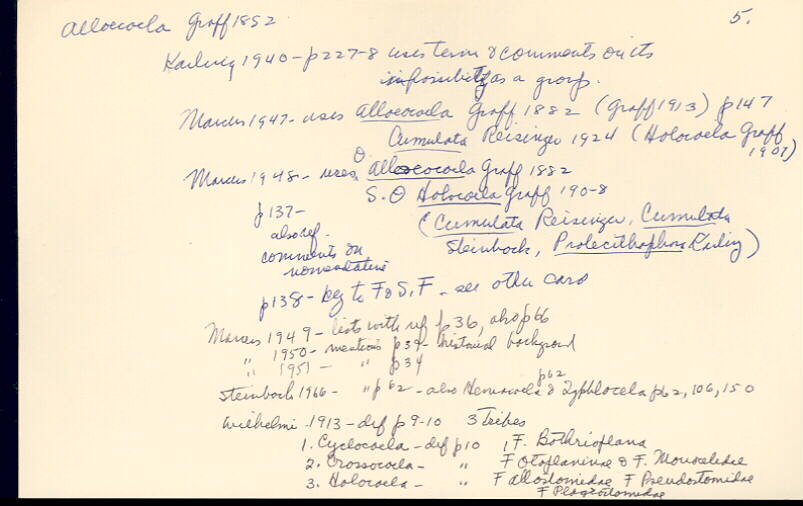 Alloeocoela Graff 1882
5.
Karling 1940 - p227-8 uses term & comments on its
impossibility as a group.
Marcus 1947 - uses Alloeocoela Graff 1882 (Graff 1913) p147
Cumulata Reisinger 1924 (Holocoela Graff
1907)
Marcus 1948 - uses O. Alloeocoela Graff 1882
S.O Holocoela Graff 190-8
p137-
also ref.
comments on
nomenclature
(Cumulata Reisinger, Cumulata
Steinbock, Prolecithophora Karling)
p138 - key to F & S.F - see other card
Marcus 1949 - lists with ref p36, also p66
" 1950 - mentions p39 - historical background
" 1951 - " p34
p62
Steinbock 1966 - " p62 - also & Typhlocoela p62, 106, 150
Wilhelmi - 1913 - def p9-10 3 Tribes
1. Cyclocoela - def p10, F. Bothrioplana
2. Crossocoela - " F Otoplaninae & F. Monocelidae
3. Holocoela - " F Allostomidae F Pseudostomidae
F Plagiostomidae